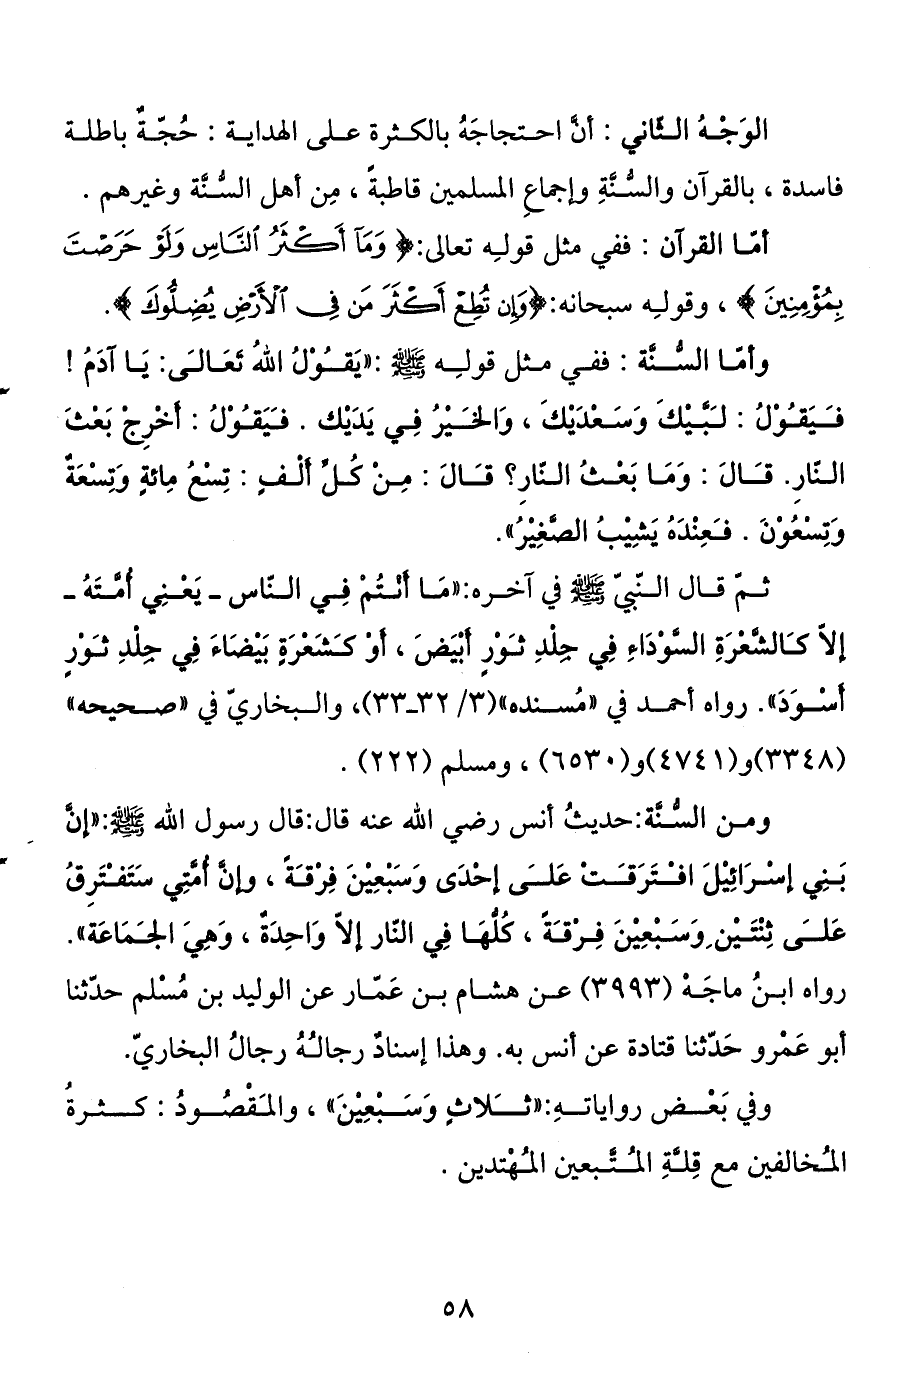 الوَجْهُ الثّاني : أنَّ احتجاجَهُ بالكثرة على الهداية : حُجّةٌ باطلة
فاسدة ، بالقرآن والسُّنَّةِ وإجماعِ المسلمين قاطبةً ، مِن أهل السُّنَّة وغيرهم .
أمّا القرآن : ففي مثل قوله تعالى:﴿ وَمَآ أَكْثَرُ ٱلنَّاسِ وَلَوْ حَرَصْتَ
بِمُؤْمِنِينَ ﴾ ، وقوله سبحانه:﴿وَإِن تُطِعْ أَكْثَرَ مَن فِى ٱلْأَرْضِ يُضِلُّوكَ ﴾.
وأمّا السُّنَّة : ففي مثل قوله ﷺ :«يَقُوْلُ اللهُ تَعَالَى: يَا آدَمُ !
فَيَقُوْلُ : لَبَّيْكَ وَسَعْدَيْكَ ، وَالخَيْرُ فِي يَدَيْك . فَيَقُوْلُ : أَخْرِجْ بَعْثَ
النّارِ. قَالَ : وَمَا بَعْثُ النّارِ؟ قَالَ : مِنْ كُلِّ أَلْفٍ : تِسْعُ مِائةٍ وَتِسْعَةٌ
وَتِسْعُوْنَ . فَعِنْدَهُ يَشِيْبُ الصَّغِيْرُ».
ثمّ قال النّبيّ ﷺ في آخره:«مَا أَنْتُمْ فِي النّاس ـ يَعْنِي أُمَّتَهُ ـ
إلاّ كَالشَّعْرَةِ السَّوْدَاءِ فِي جِلْدِ ثَوْرٍ أَبْيَضَ ، أَوْ كَشَعْرَةٍ بَيْضَاءَ فِي جِلْدِ ثَوْرٍ
أَسْوَدَ». رواه أحمد في «مُسنده»(٣/ ٣٢ـ٣٣)، والبخاريّ في «صحيحه»
(٣٣٤٨)و(٤٧٤١)و(٦٥٣٠) ، ومسلم (٢٢٢) .
ومن السُّنَّة:حديثُ أنس رضي الله عنه قال:قال رسول الله ﷺ:«إنَّ
بَنِي إسْرَائِيْلَ افْتَرَقَتْ عَلَى إحْدَى وَسَبْعِيْنَ فِرْقَةً ، وإنَّ أُمَّتِي سَتَفْتَرِقُ
عَلَى ثِنْتَيْنِ وَسَبْعِيْنَ فِرْقَةً ، كُلُّهَا فِي النّار إلاّ وَاحِدَةٌ ، وَهِيَ الجَمَاعَة».
رواه ابنُ ماجَهْ (٣٩٩٣) عن هشام بن عَمّار عن الوليد بن مُسْلم حدّثنا
أبو عَمْرو حَدّثنا قتادة عن أنس به. وهذا إسنادٌ رجالُهُ رجالُ البخاريّ.
وفي بَعْض رواياته:«ثَلاثٍ وَسَبْعِيْنَ» ، والمَقْصُودُ : كثرةُ
المُخالفين مع قِلّةِ المُتَّبعين المُهْتدين .
٥٨